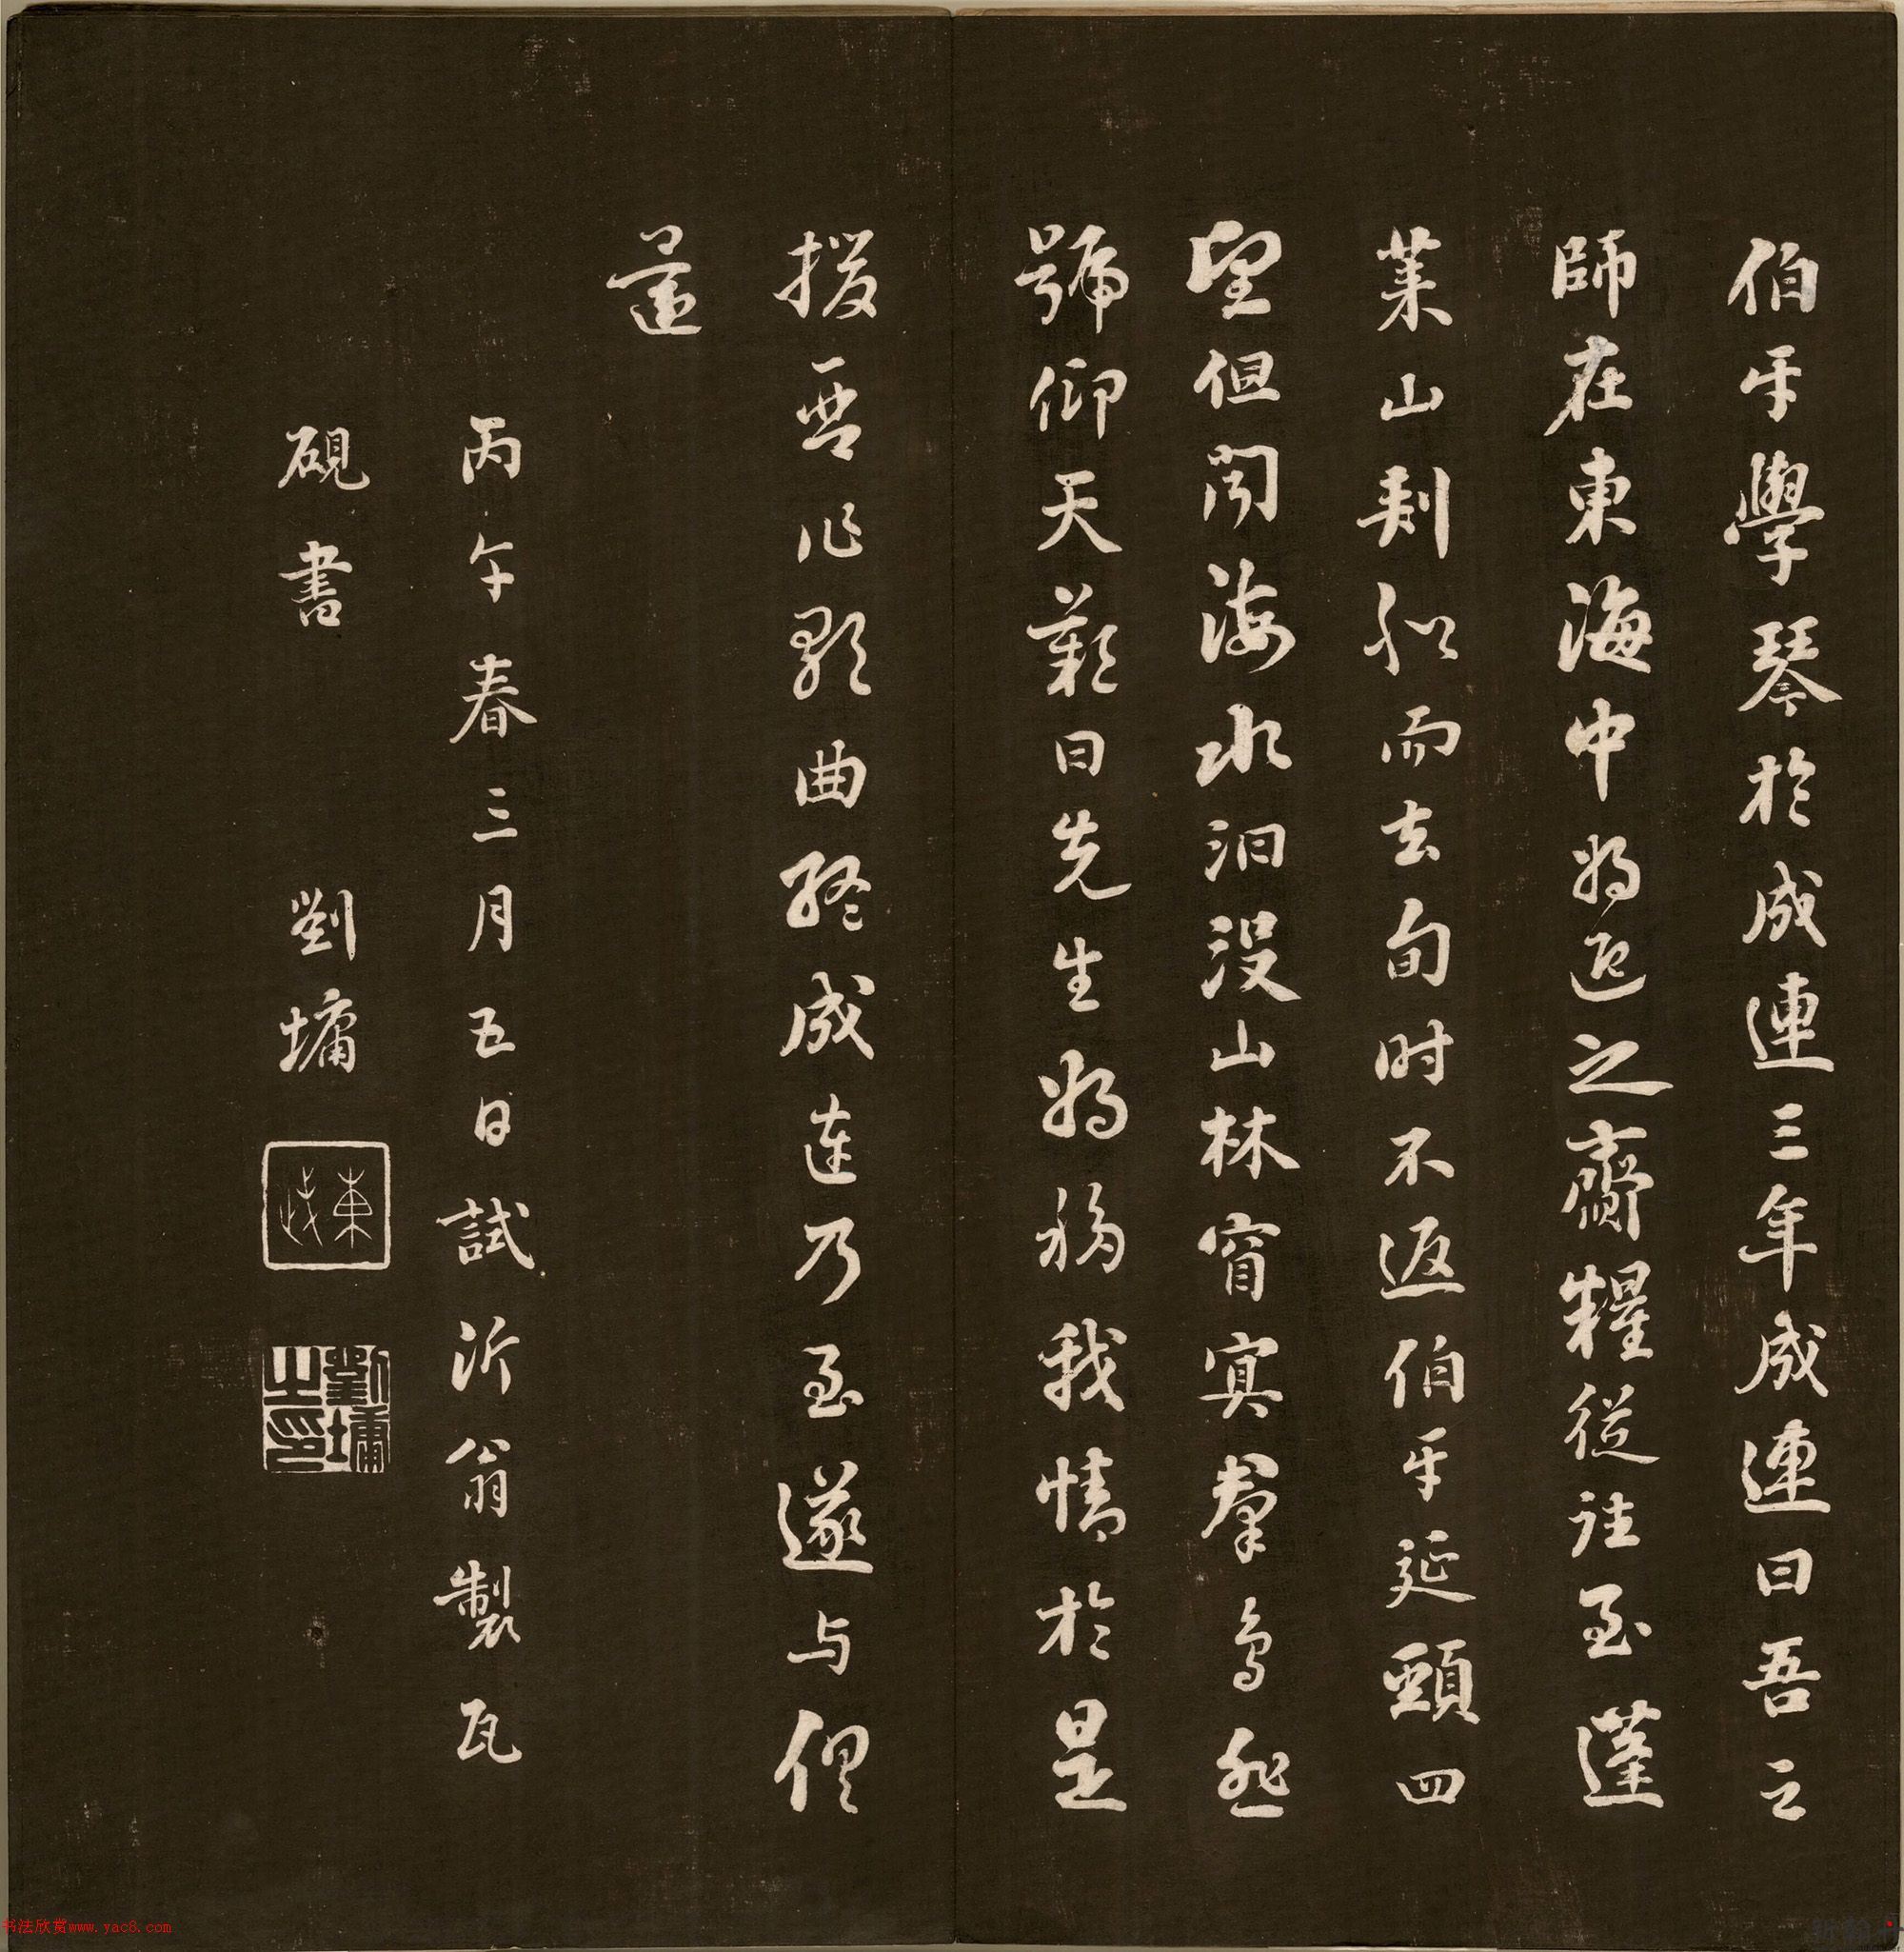 伯牙學琴於成連三年成連曰吾之
師在東海中將迎之齎糧從往至蓬
萊山刺船而去旬时不返伯牙延頸四
望但聞海水汩没山林窅冥羣鳥悲
號仰天歎曰先生將移我情於是
援琴作歌曲終成連乃至遂与俱
還
丙午春三月五日試沂翁製瓦
硯書 劉墉
東武
劉墉之印
书法欣赏www.yac8.com